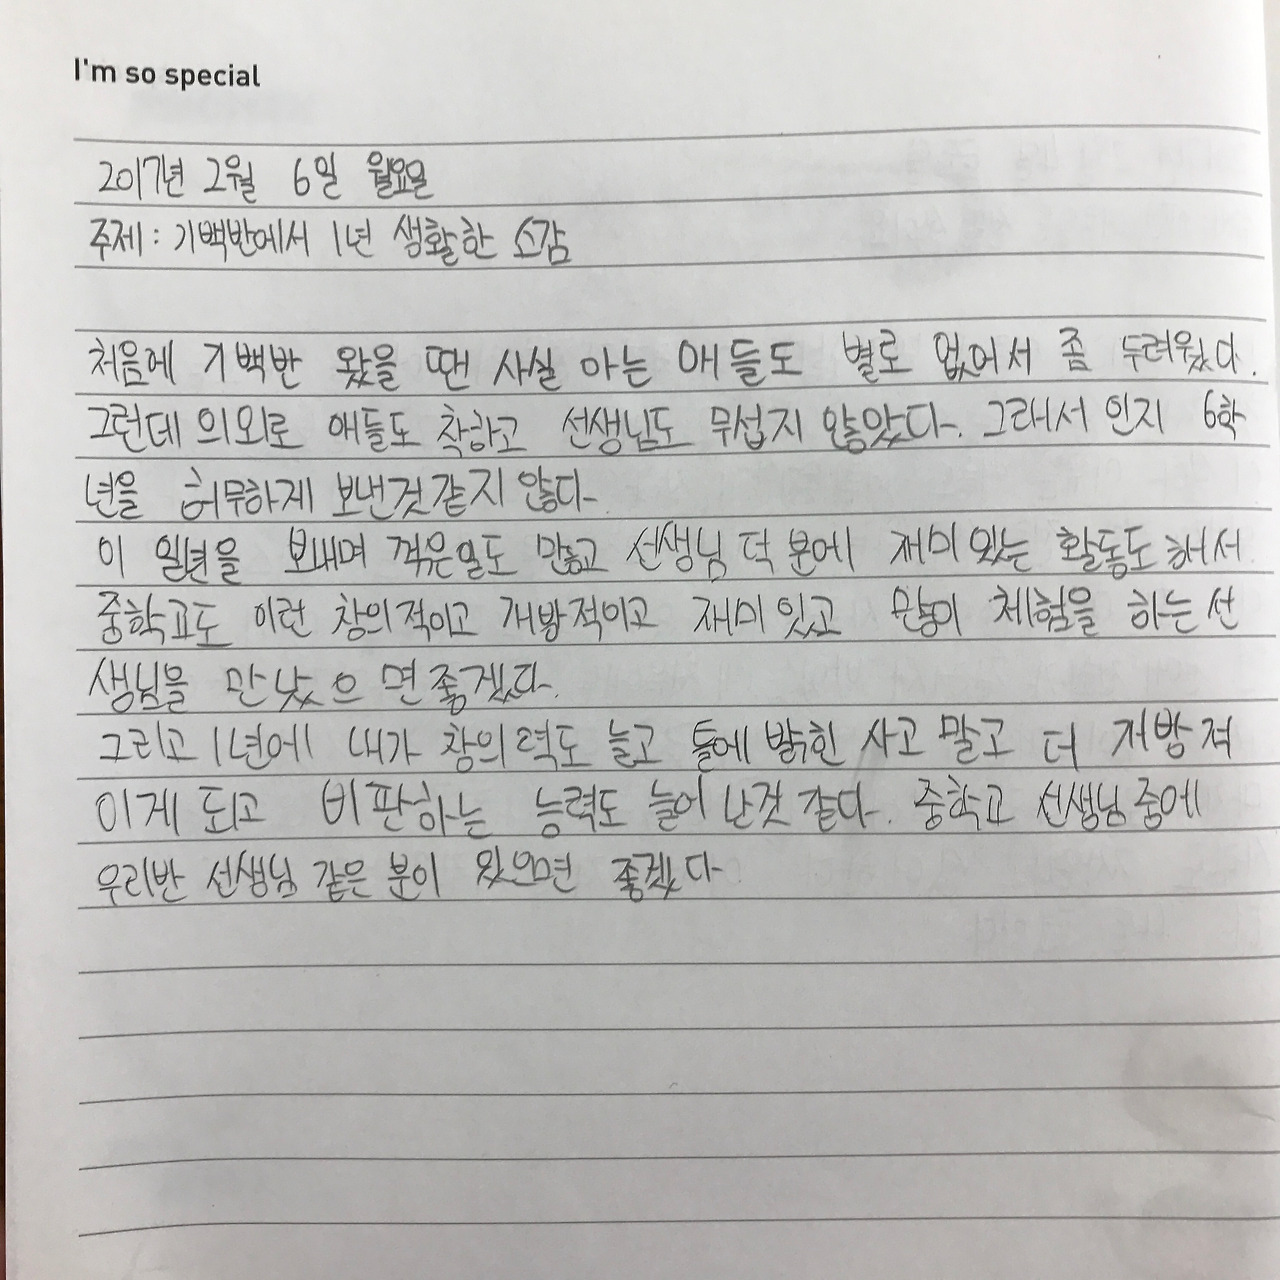 I'm so special
2017년 2월 6일 월요일
주제: 기백반에서 1년 생활한 소감
처음에 기백반 왔을 땐 사실 아는 애들도 별로 없어서 좀 두려웠다.
그런데 의외로 애들도 착하고 선생님도 무섭지 않았다. 그래서 인지 6학
년을 허무하게 보낸것같지 않다.
이 일년을 보내며 겪은일도 많고 선생님 덕분에 재미있는 활동도 해서
중학교도 이런 창의적이고 개방적이고 재미있고 많이 체험을 하는 선
생님을 만났으면좋겠다.
그리고 1년에 내가 창의력도 늘고 틀에 밝힌 사고 말고 더 개방적
이게 되고 비판하는 능력도 늘어난것 같다. 중학교 선생님중에
우리반 선생님 같은 분이 있으면 좋겠다